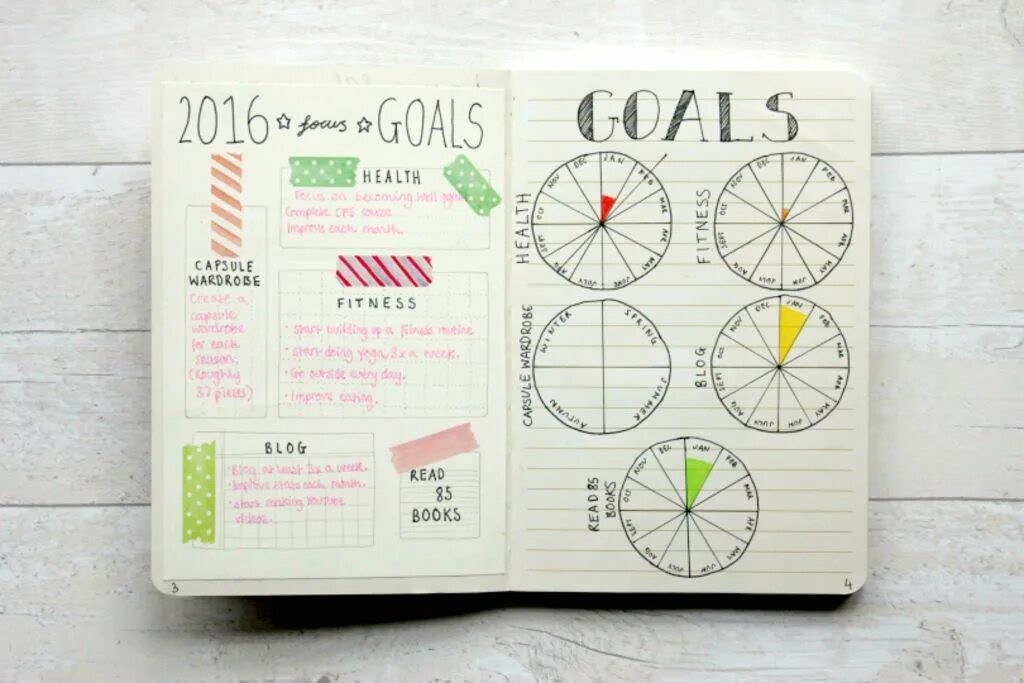 2016 ☆ focus ☆ GOALS
HEALTH
Focus on becoming well again
Complete CFS course
Improve each month.
CAPSULE
WARDROBE
Create a
capsule
wardrobe
for each
season.
(Roughly
37 pieces)
FITNESS
• Start building up a fitness routine
• Start doing yoga 3x a week.
• Go outside every day.
• Improve eating.
BLOG
• Blog at least 3x a week.
• Improve stats each month.
• Start making YouTube
videos.
READ
85
BOOKS
3
GOALS
HEALTH
JAN
FEB
MAR
APR
MAY
JUNE
JULY
AUG
SEPT
OCT
NOV
DEC
FITNESS
JAN
FEB
MAR
APR
MAY
JUN
JULY
AUG
SEPT
OCT
NOV
DEC
CAPSULE WARDROBE
WINTER
SPRING
SUMMER
AUTUMN
BLOG
JAN
FEB
MAR
APR
MAY
JUN
JULY
AUG
SEPT
OCT
NOV
DEC
READ 85
BOOKS
JAN
FEB
MAR
APR
MAY
JUN
JULY
AUG
SEPT
OCT
NOV
DEC
4